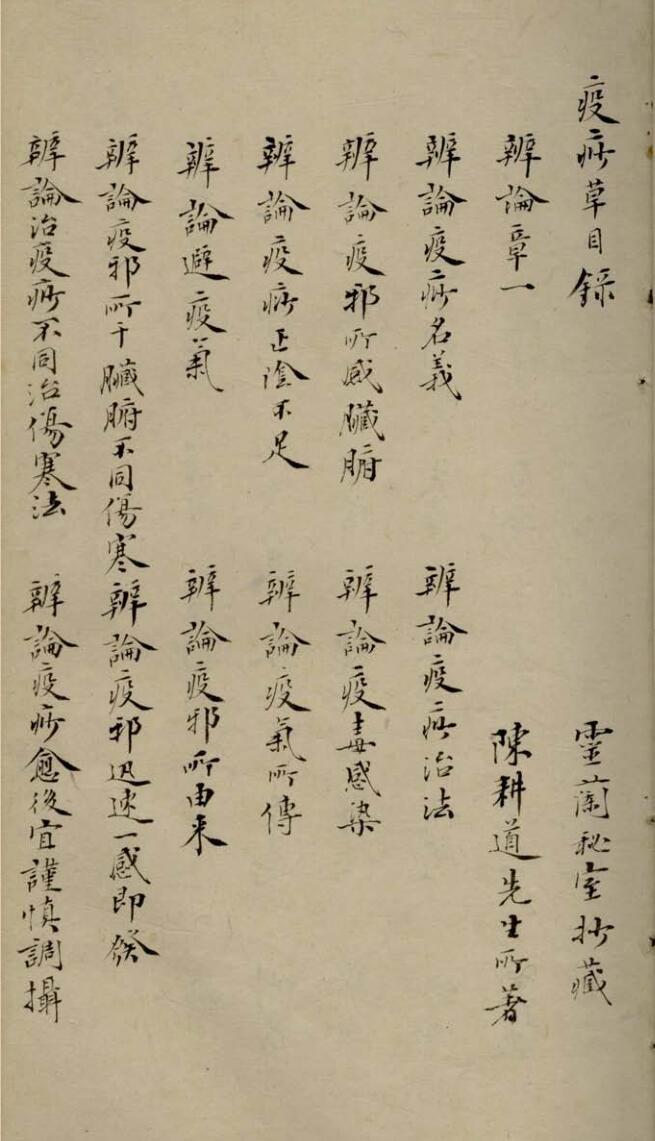 疫痧草目錄 靈蘭秘室抄藏
辨論章一 陳耕道先生所著
辨論疫痧名義 辨論疫痧治法
辨論疫邪所感臟腑 辨論疫毒感染
辨論疫痧正陰不足 辨論疫氣所傳
辨論避疫氣 辨論疫邪所由来
辨論疫邪所干臟腑不同傷寒 辨論疫邪迅速一感即發
辨論治疫痧不同治傷寒法 辨論疫痧愈後宜謹慎調攝